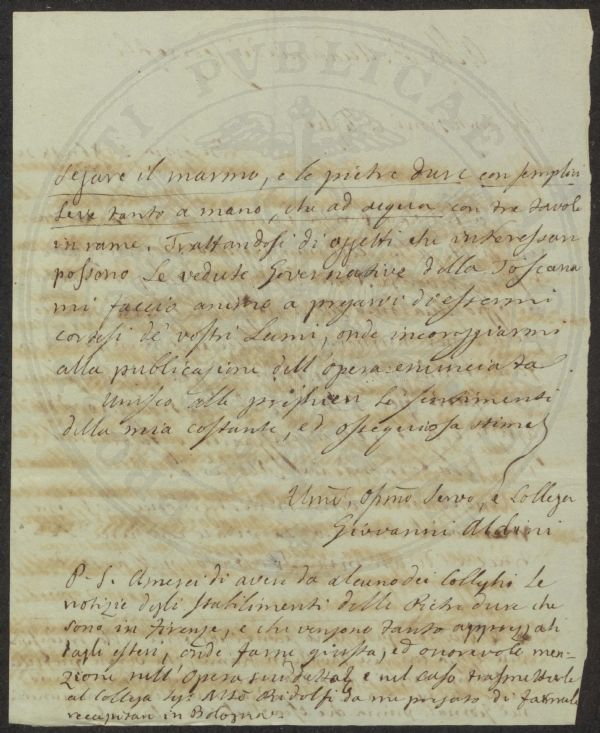 segare il marmo, e le pietre dure con semplici
seve tanto a mano, che ad acqua con tre tavole
in rame. Trattandosi di oggetti che interessar
possono le vedute Governative della Toscana
mi faccio animo a pregarvi di essermi
cortesi de' vostri Lumi, onde incoraggiarmi
alla publicazione dell'opera enunciata
Unisco alle preghiere le sentimenti
della mia costante, ed ossequiosa stima
Umo, Obmo Servo, e Collega
Giovanni Aldini
P. S. Amerei di avere da alcuno dei Colleghi le
notizie degli Stabilimenti delle Pietre dure che
sono in Firenze, e che vengono tanto apprezzati
dagli esteri, onde farne giusta, ed onorevole men-
zione nell'Opera suddetta, e nel caso trasmetterle
al Collega Sig. Ridolfi da me pregato di farmele
recapitare in Bologna.
PUBLICAE